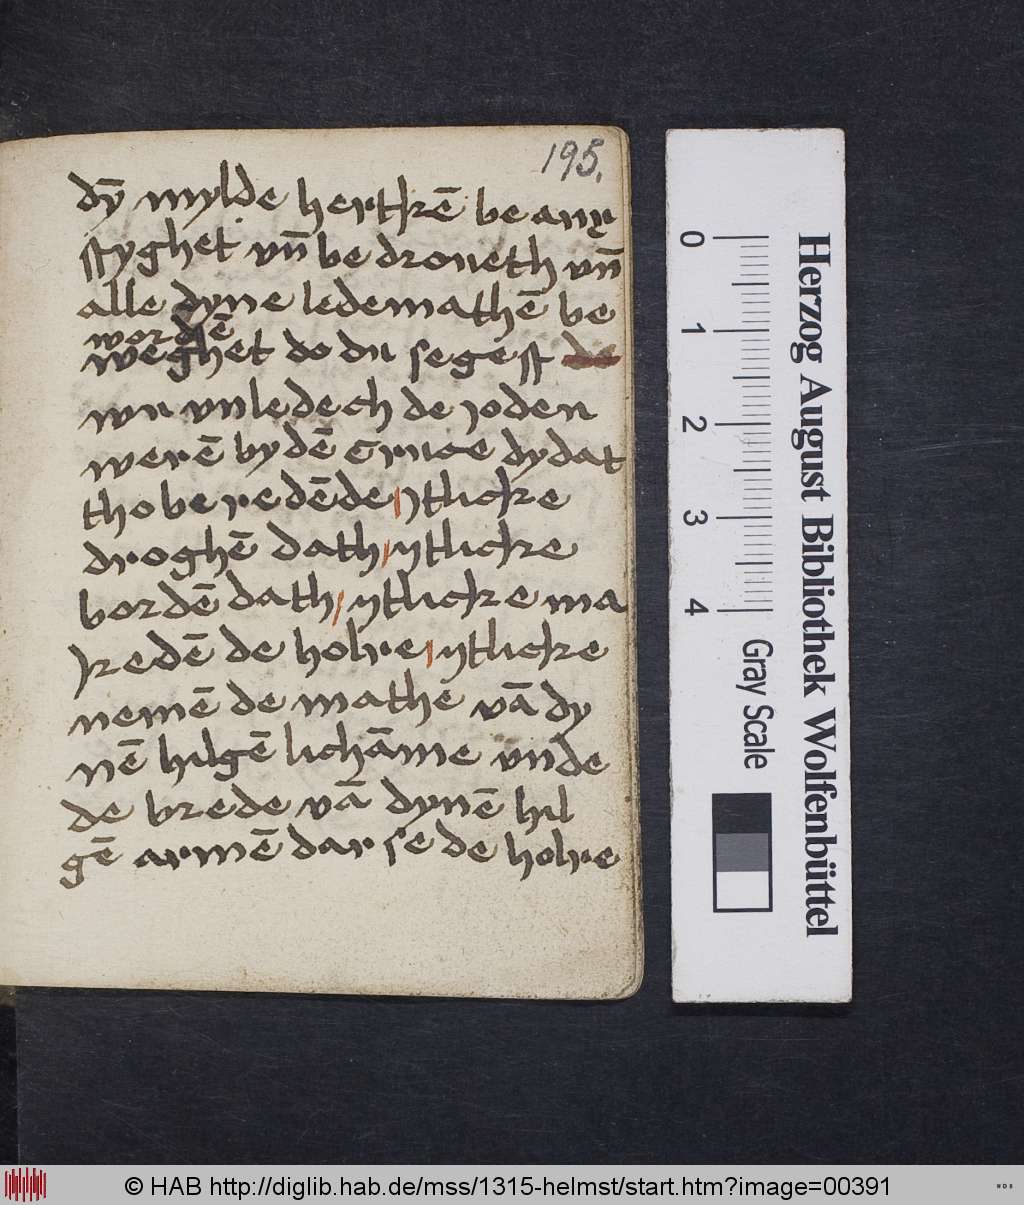 195.
dȳ mylde hertkē be anx
styghet vn̄ be droueth vn̄
alle dyne ledemathē be
wordē
weghet do du segest de
wu vnledech de joden
werē by dē cruce dy dat
tho be redē de ytlicke
droghē dath ytlicke
bordē dath ytlicke ma
kedē de holre ytlicke
nemē de mathe vā dy
nē hilgē lichāme vnde
de brede vā dynē hil
gē armē dar se de holre
Herzog August Bibliothek Wolfenbüttel
0 1 2 3 4
Gray Scale
© HAB http://diglib.hab.de/mss/1315-helmst/start.htm?image=00391